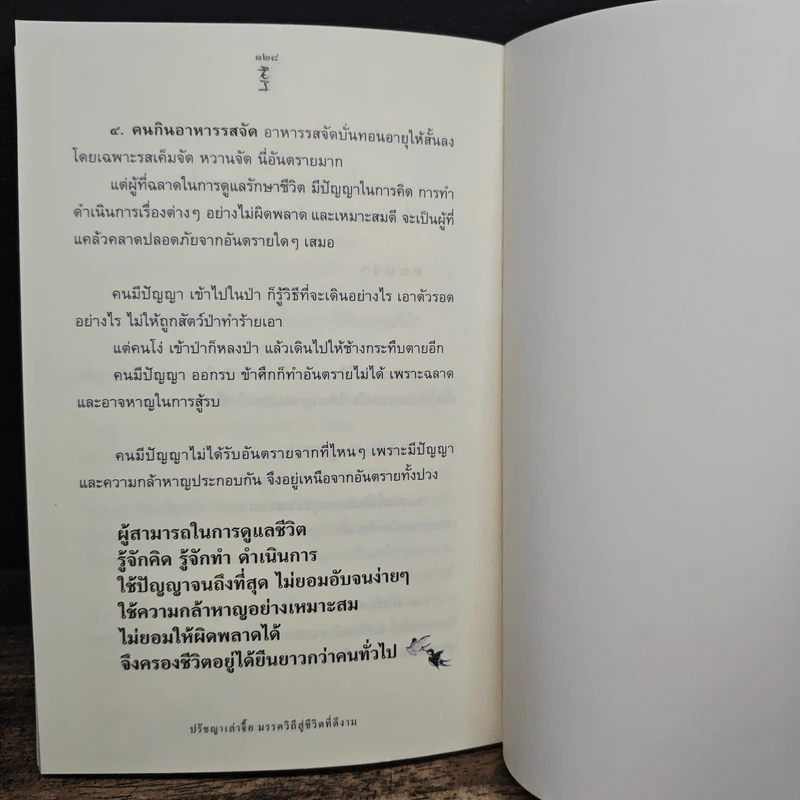 ๑๒๘
๔. คนกินอาหารรสจัด อาหารรสจัดบั่นทอนอายุให้สั้นลง
โดยเฉพาะรสเค็มจัด หวานจัด นี่อันตรายมาก
แต่ผู้ที่ฉลาดในการดูแลรักษาชีวิต มีปัญญาในการคิด การทำ
ดำเนินการเรื่องต่างๆ อย่างไม่ผิดพลาด และเหมาะสมดี จะเป็นผู้ที่
แคล้วคลาดปลอดภัยจากอันตรายใดๆ เสมอ
คนมีปัญญา เข้าไปในป่า ก็รู้วิธีที่จะเดินอย่างไร เอาตัวรอด
อย่างไร ไม่ให้ถูกสัตว์ป่าทำร้ายเอา
แต่คนโง่ เข้าป่าก็หลงป่า แล้วเดินไปให้ช้างกระทืบตายอีก
คนมีปัญญา ออกรบ ข้าศึกก็ทำอันตรายไม่ได้ เพราะฉลาด
และอาจหาญในการสู้รบ
คนมีปัญญาไม่ได้รับอันตรายจากที่ไหนๆ เพราะมีปัญญา
และความกล้าหาญประกอบกัน จึงอยู่เหนือจากอันตรายทั้งปวง
ผู้สามารถในการดูแลชีวิต
รู้จักคิด รู้จักทำ ดำเนินการ
ใช้ปัญญาจนถึงที่สุด ไม่ยอมอับจนง่ายๆ
ใช้ความกล้าหาญอย่างเหมาะสม
ไม่ยอมให้ผิดพลาดได้
จึงครองชีวิตอยู่ได้ยืนยาวกว่าคนทั่วไป
ปรัชญาเล่าจื้อ มรรควิถีสู่ชีวิตที่ดีงาม